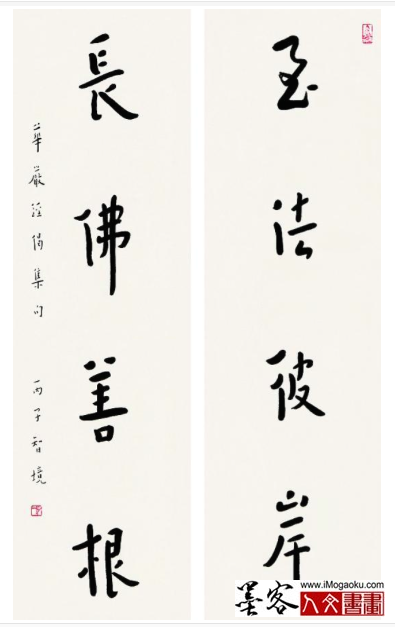 至法彼岸
長佛善根
華嚴經偈集句
丙子智境
墨客
www.iMogaoku.com
人文書畫